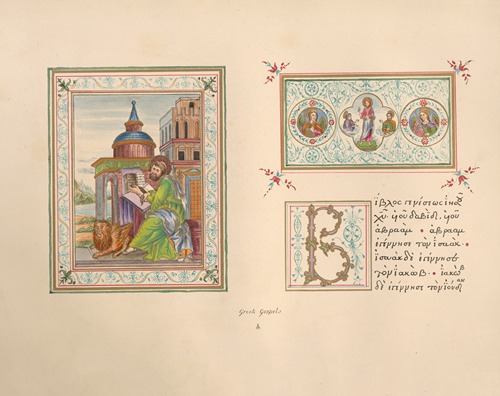 Β
ίβλος γενέσεως ἰῦ
χῦ. υἱοῦ δαβὶδ, υἱοῦ
ἀβραάμ • ἀβρααμ
ἐγέννησε τὸν ἰσαάκ •
ἰσαὰκ δὲ ἐγέννησε
τὸν ἰακὼβ • ἰακὼβ
δὲ ἐγέννησε τὸν ἰούδαν
Greek Gospels